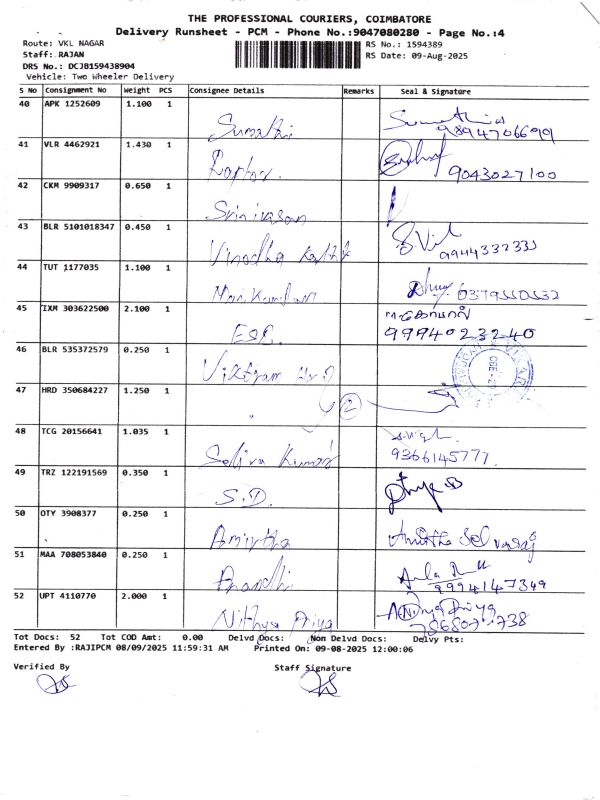 THE PROFESSIONAL COURIERS, COIMBATORE
Delivery Runsheet - PCM - Phone No.:9047080280 - Page No.:4
Route: VKL NAGAR
RS No.: 1594389
Staff: RAJAN
RS Date: 09-Aug-2025
DRS No.: DCJB159438904
Vehicle: Two Wheeler Delivery
S No Consignment No Weight PCS Consignee Details Remarks Seal & Signature
40 APK 1252609 1.100 1 Sumathi
9894706699
41 VLR 4462921 1.430 1
9043027100
42 CKM 9909317 0.650 1 Srinivasan
43 BLR 5101018347 0.450 1 Vinodha
9944332333
44 TUT 1177035 1.100 1 Manikandan
45 IXM 303622500 2.100 1 ESE.
9994023240
46 BLR 535372579 0.250 1
47 HRD 350684227 1.250 1 " 2
48 TCG 20156641 1.035 1 Selva Kumar
9366145777
49 TRZ 122191569 0.350 1 S.D.
50 OTY 3908377 0.250 1 Amirtha
51 MAA 708053840 0.250 1 Anandhi
9994147349
52 UPT 4110770 2.000 1 Nithya Priya
Tot Docs: 52 Tot COD Amt: 0.00 Delvd Docs: Non Delvd Docs: Delvy Pts:
Entered By :RAJIPCM 08/09/2025 11:59:31 AM Printed On: 09-08-2025 12:00:06
Verified By Staff Signature